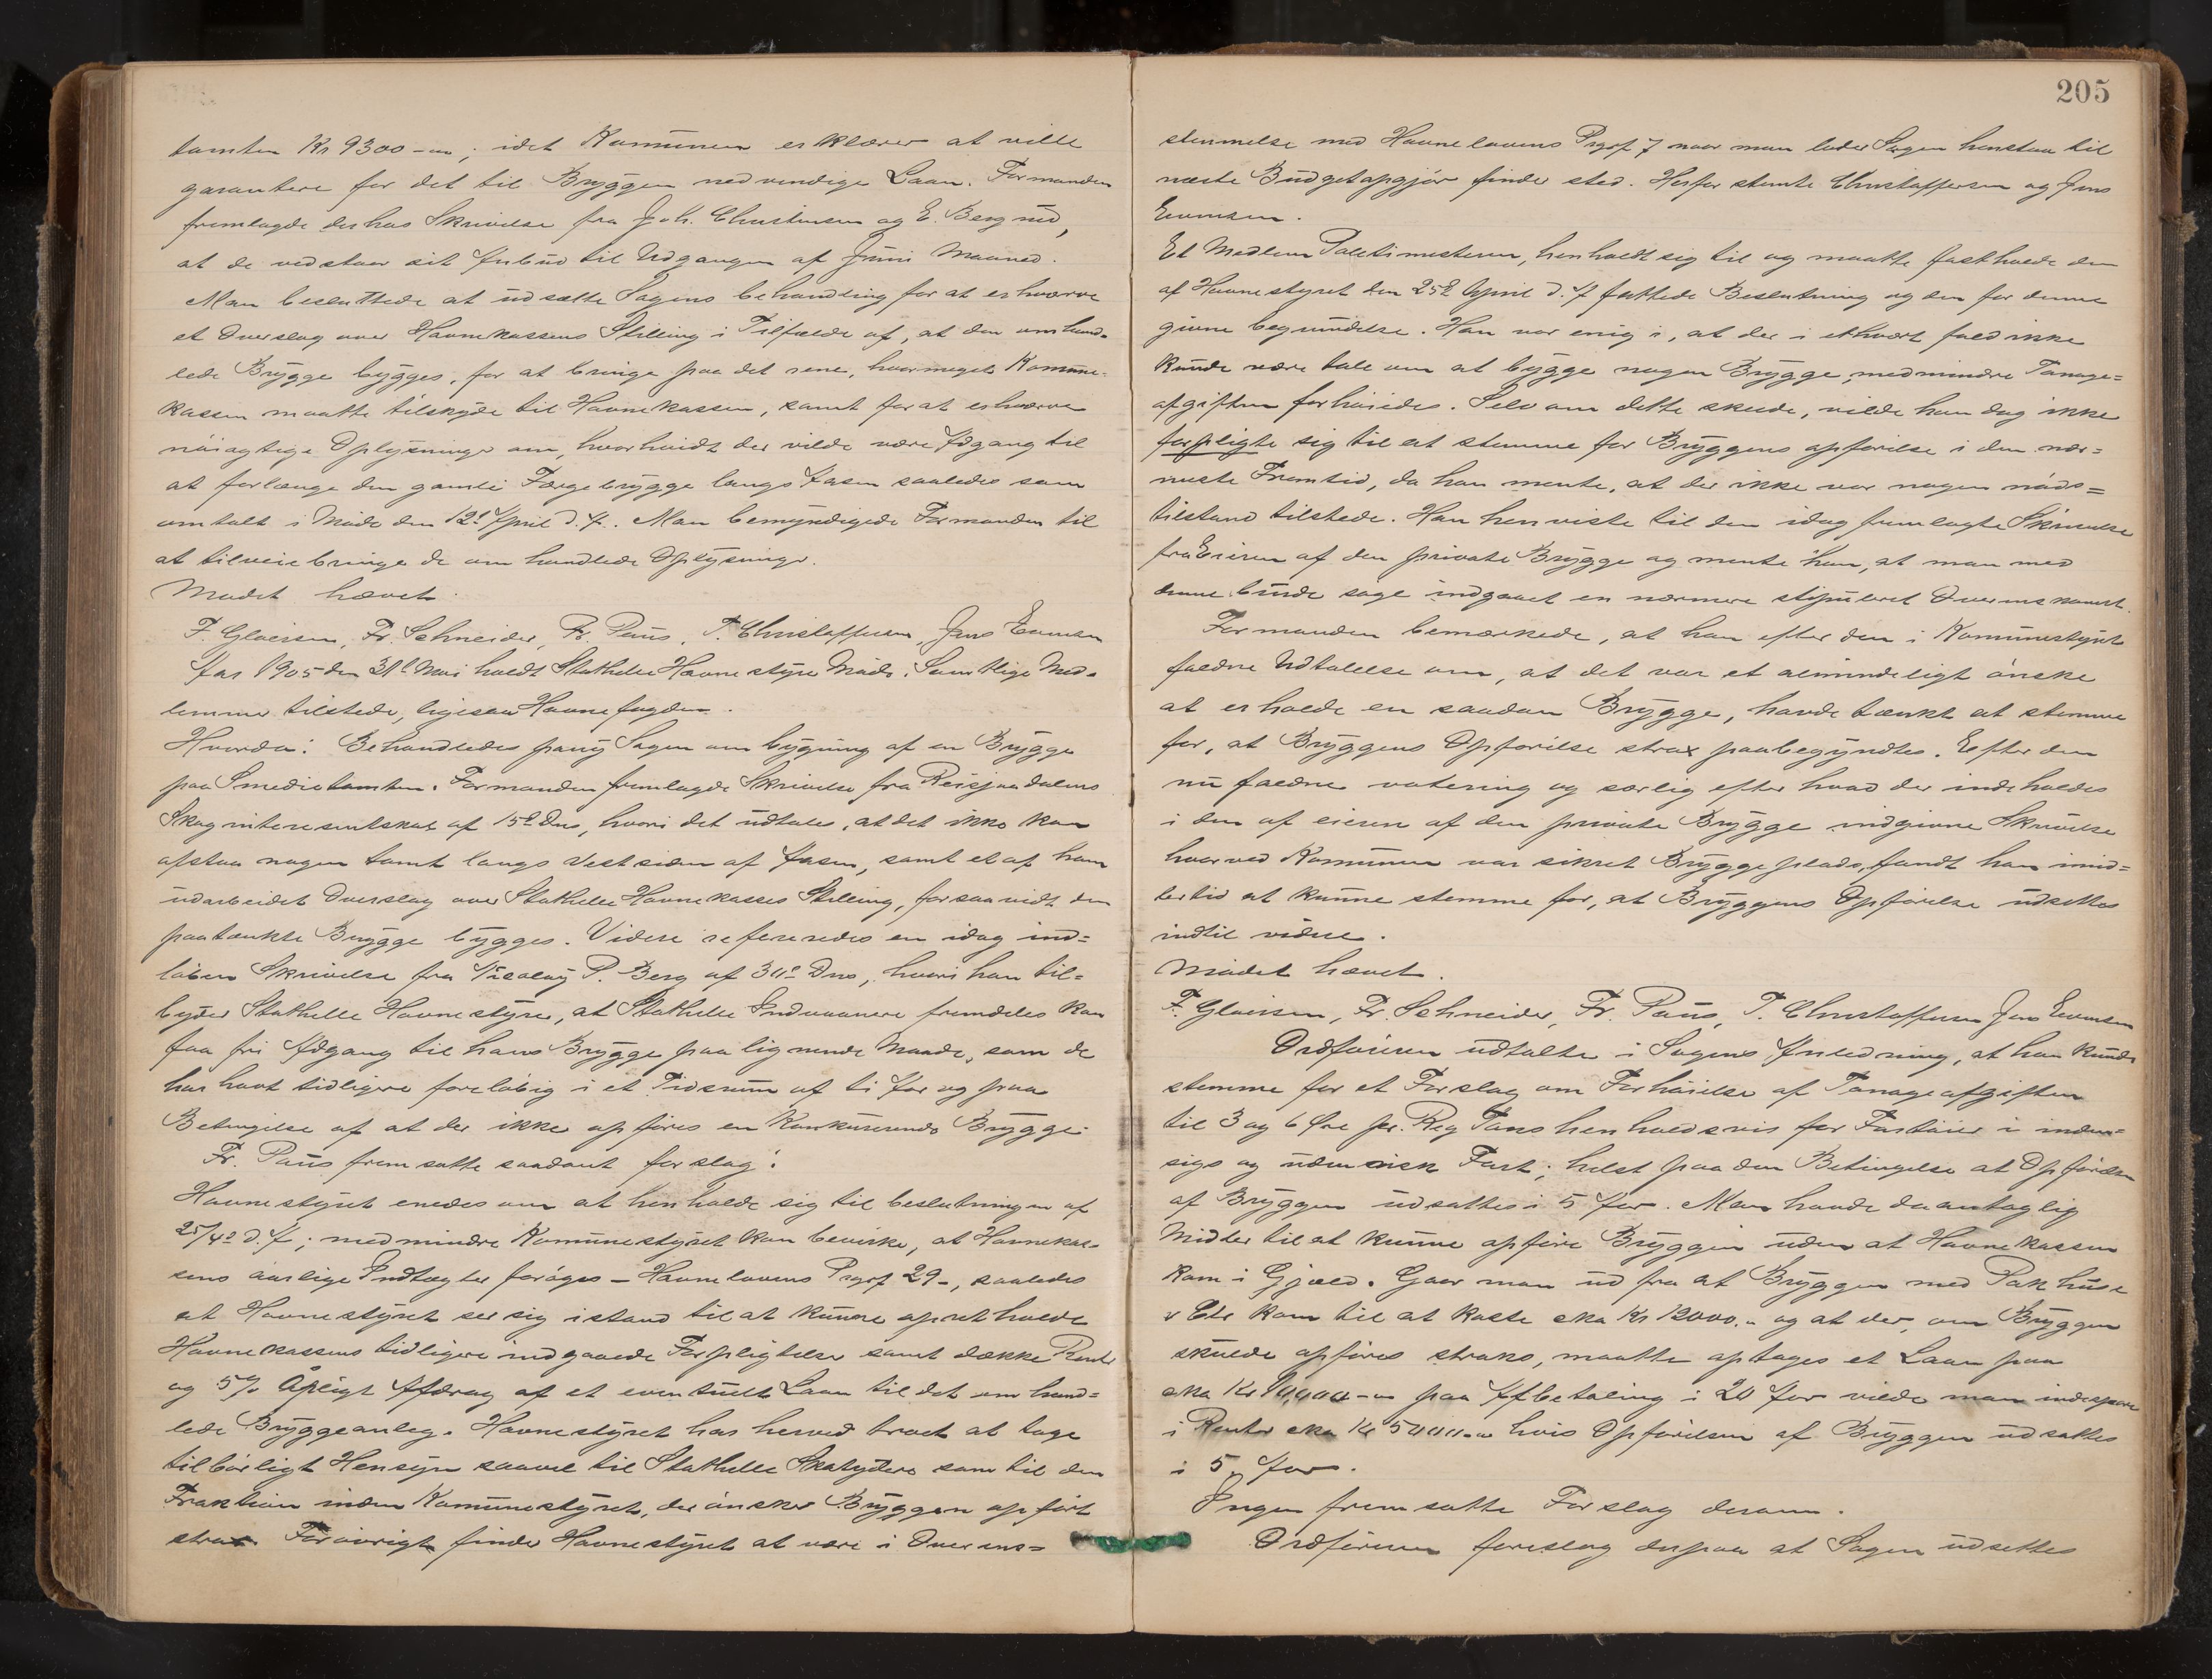 tomten Kr 9300-"", idet Kommunen erklærer at ville
garantere for det til Bryggen nødvendige Laan. Formanden
fremlagde derhos Skrivelse fra Joh. Christensen og E. Bergnid,
at de vedstaar sit Anbud til Udgangen af Juni Maaned.
Man besluttede at udsætte Sagens behandling for at erhværve
et Overslag over Havnekassens Stilling i Tilfælde af, at den omhand-
lede Brygge bygges, for at bringe paa det rene, hvormeget Kommune-
kassen maatte tilskyde til Havnekassen, samt for at erhværve
nöiagtige Oplysninger om, hvorhvidt der vilde være Adgang til
at forlænge den gamle Færgebrygge langs Aasen saaledes som
omtalt i Möde den 12te April d. A. Man bemyndigede Formanden til
at tilveiebringe de omhandlede Oplysninger.
Mödet hævet.
F. Gloersen, Fr. Schneider, Fr. Paus, T. Christoffersen, Jens Evensen
Aar 1905 den 31te Mai holdt Stathelle Havnestyre Möde. Samtlige Med-
lemmer tilstede, ligesaa Havnefogden.
Hvorda: Behandledes paany Sagen om bygning af en Brygge
paa Smedietomten. Formanden fremlagde Skrivelse fra Reisjaadalens
Skoginteresentskab af 15de Dns, hvori det udtales, at det ikke kan
afstaa nogen tomt langs Vestsiden af Aasen, samt et af ham
udarbeidet Overslag over Stathelle Havnekasses Stilling, forsaavidt den
paatænkte Brygge bygges. Videre refereredes en idag ind-
löben Skrivelse fra Nicolay P. Berg af 30te Dns, hvori han til-
byder Stathelle Havnestyre, at Stathelle Indvaanere fremdeles kan
faa fri Adgang til hans Brygge paa lignende Maade, som de
har havt tidligere forelöbig i et Tidsrum af ti Aar og paa
Betingelse af at der ikke opföres en konkurerende Brygge.
Fr. Paus fremsatte saadant forslag:
Havnestyret enedes om at henholde sig til beslutningen af
25/4de d. A; medmindre Kommunestyret kan bevirke, at Havnekas-
sens aarlige Indtægter foröges - Havnelovens Prgrf 29-, saaledes
at Havnestyret ser sig istand til at kunne opretholde
Havnekassens tidligere indgaaede Forpligtelser samt dække Rente
og 5% Aarligt Afdrag af et eventuelt Laan til det omhand-
lede Bryggeanleg. Havnestyret har herved troet at tage
tilbörligt Hensyn saavel til Stathelle Skatydere som til den
Fraktion inden Kommunestyret, der önsker Bryggen opfört
strax. Foröivrigt finder Havnestyret at være i Overens-
205
stemmelse med Havnelovens Prgrf 7 naar man lader Sagen henstaa til
næste Budgetopgjör finder sted. Herfor stemte Christoffersen og Jens
Evensen.
Et Medlem Politimesteren, henholdt sig til og maatte fastholde den
af Havnestyret den 25de April d. A fattede Beslutning og den for denne
givne begrundelse. Han var enig i, at der i ethvert fald ikke
kunde være tale om at bygge nogen Brygge, medmindre Tonage-
afgiften forhöiedes. Selv om dette skede, vilde han dog ikke
forpligte sig til at stemme for Bryggens opförelse i den nær-
meste Fremtid, da han mente, at der ikke var nogen nöds-
tilstand tilstede. Han henviste til den idag fremlagte Skrivelse
fra Eieren af den private Brygge og mente han, at man med
denne burde söge indgaaet en nærmere stipuleret Overenskomst.
Formanden bemærkede, at han efter den i Kommunestyret
faldne Udtalelse om, at det var et almindeligt önske
at erholde en saadan Brygge, havde tænkt at stemme
for, at Bryggens Opförelse strax paabegyndtes. Efter den
nu faldne votering og særlig efter hvad der indeholdes
i den af eieren af den private Brygge indgivne Skrivelse
hvorved Kommunen var sikret Bryggeplads, fandt han imid-
lertid at kunne stemme for, at Bryggens Opförelse udsettes
indtil videre.
Mödet hævet.
F. Gloersen, Fr. Schneider, Fr. Paus, T. Christoffersen Jens Evensen
Ordföreren udtalte i Sagens Anledning, at han kunde
stemme for et Forslag om Forhöielse af Tonageafgiften
til 3 og 6 Öre pr. Reg Tons henholdsvis for Fartöier i inden-
rigs og udenrigsk Fart; helst paa den Betingelse at Opförelsen
af Bryggen udsattes i 5 Aar. Man havde da antaglig
Midler til at kunne opföre Bryggen uden at Havnekassen
kom i Gjæld. Gaar man ud fra at Bryggen med Pakhuse
& Etc kom til at koste cka Kr 12000." og at der, om Bryggen
skulde opföres straks, maatte optages et Laan paa
cka Kr 10,000-"" paa Afbetaling i 20 Aar vilde man indespare
i Renter cka Kr 5000." hvis Opförelsen af Bryggen udsattes
i 5 Aar.
Ingen fremsatte Forslag derom.
Ordföreren foreslog derpaa at Sagen udsettes